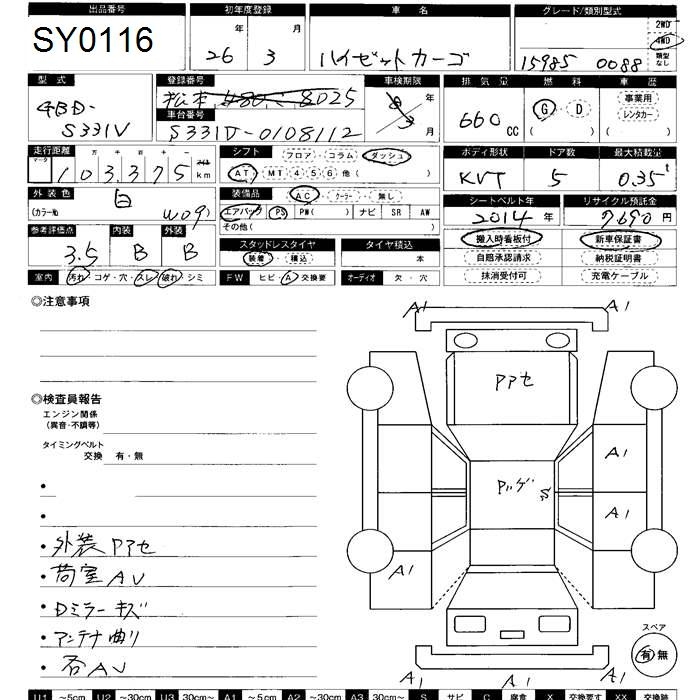 出品番号 初年度登録 車名 グレード/類別型式
SY0116 26年 3月 ハイゼットカーゴ 15985 0088 2WD 4WD 類型なし
型式 登録番号 車検期限 排気量 燃料 車歴
4BD-S331V 松本 480 8025 8年 3月 660cc G・D ( ) 事業用 レンタカー ( )
車台番号
S331D-0108112
走行距離 シフト フロア・コラム・ダッシュ ボディ形状 ドア数 最大積載量
マーク 十万千百十一 マイル
103,375 km AT・MT 4 5 6 他 ( ) 5 0.35t
外装色 白 装備品 AC・クーラー・無し シートベルト年 リサイクル預託金
(カラーNo W09) エアバック PS PW( ) ナビ SR AW 2014年 7690円
その他 ( )
参考評価点 内装 外装 スタッドレスタイヤ タイヤ積込 搬入時看板付 新車保証書
3.5 B B 装着・積込 本 自賠承認請求 納税証明書
室内 汚れ・コゲ・穴・スレ・破れ・シミ FW ヒビ・A・交換要 オーディオ 欠・穴 抹消受付可 充電ケーブル
◎注意事項
A1 A1
Pアセ
◎検査員報告
エンジン関係
(異音・不調等)
タイミングベルト
交換 有・無
A1
S
A1
・外装Pアセ
・荷室AU
A1
・Dミラーキズ
・アンテナ曲り
スペア
有 無
・各AU
A1 A1
U1 ~5cm U2 ~30cm U3 30cm~ A1 ~5cm A2 ~30cm A3 30cm~ S サビ C 腐食 X 交換要す XX 交換跡